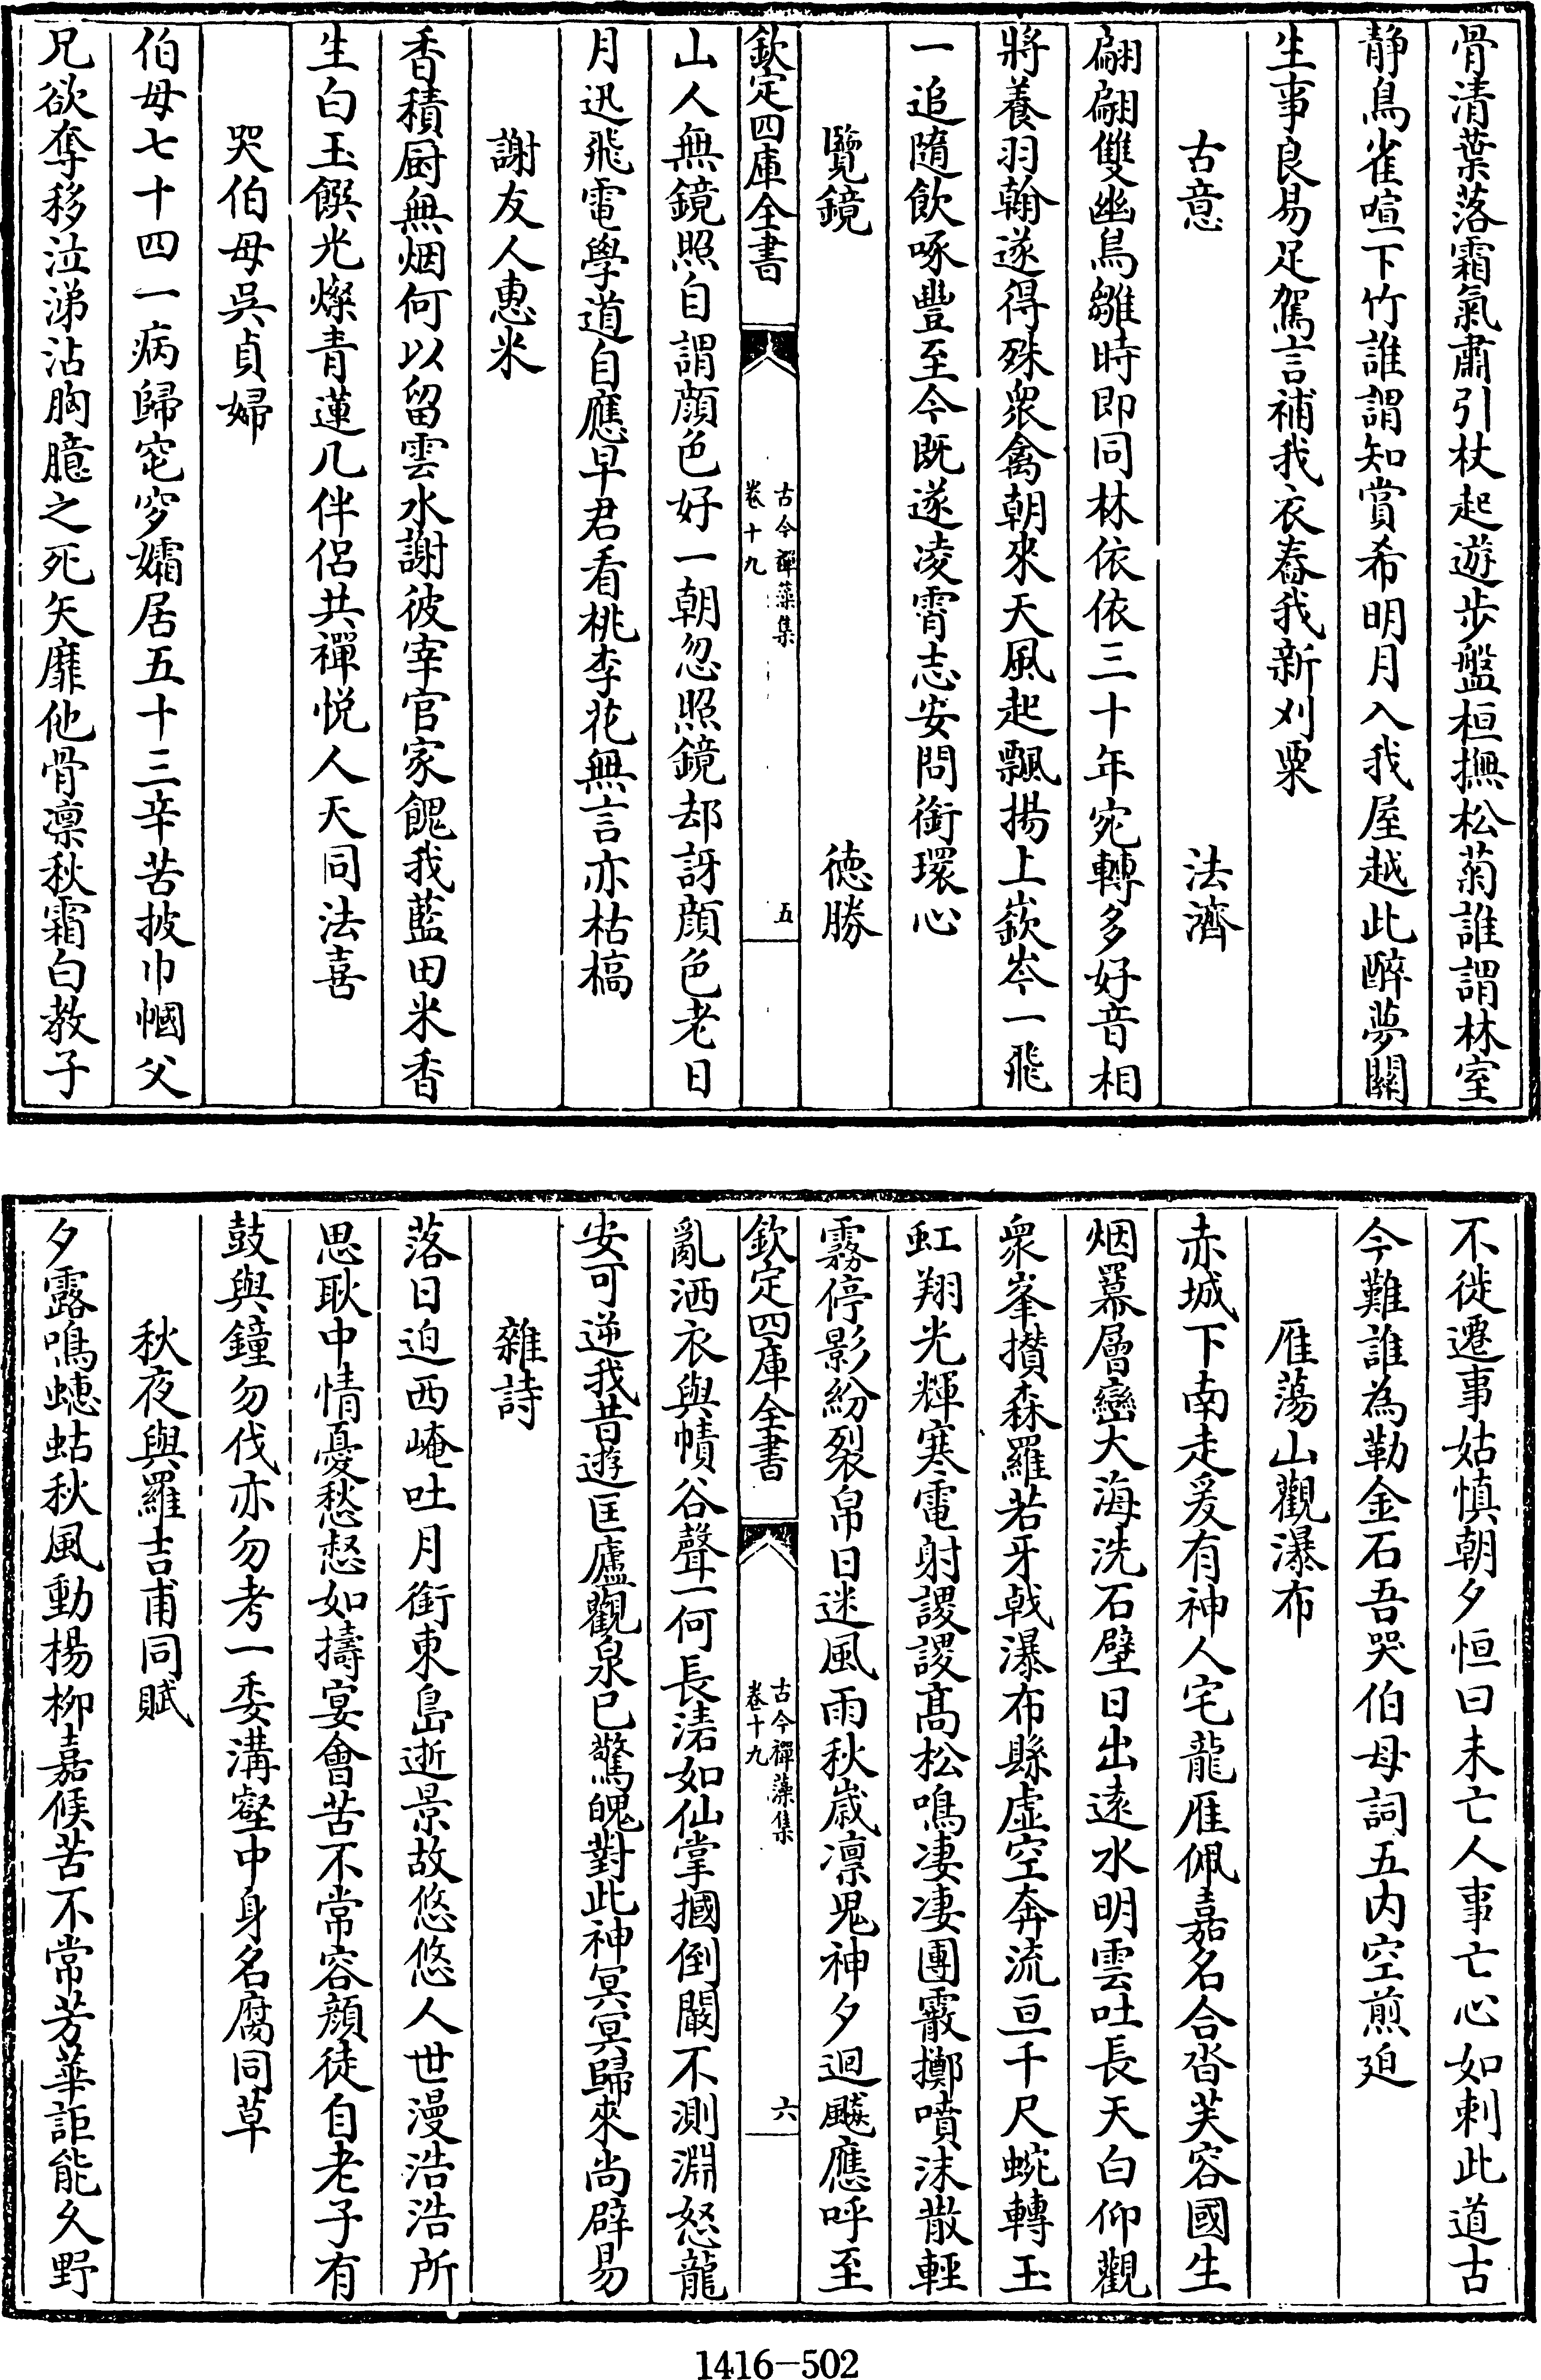 骨清葉落霜氣肅引杖起遊步盤桓撫松菊誰謂林室
静鳥雀喧下竹誰謂知賞希明月入我屋越此醉夢關
生事良易足駕言補我衣舂我新刈粟
古意　法濟
翩翩雙幽鳥雛時即同林依依三十年宛轉多好音相
將養羽翰遂得殊衆禽朝來天風起飄揚上嶔岑一飛
一追隨飲啄豐至今既遂凌霄志安問銜環心
覽鏡　徳勝
欽定四庫全書
古今禪藻集
卷十九
五
山人無鏡照自謂顔色好一朝忽照鏡却訝顔色老日
月迅飛電學道自應早君看桃李花無言亦枯槁
謝友人惠米
香積厨無烟何以留雲水謝彼宰官家餽我藍田米香
生白玉饌光燦青蓮几伴侣共禪悦人天同法喜
哭伯母吳貞婦
伯母七十四一病歸窀穸孀居五十三辛苦披巾幗父
兄欲奪移泣涕沾胸臆之死矢靡他骨凛秋霜白教子
不徙遷事姑慎朝夕恒曰未亡人事亡心如刺此道古
今難誰為勒金石吾哭伯母詞五内空煎廹
雁蕩山觀瀑布
赤城下南走爰有神人宅龍雁佩嘉名合沓芙容國生
烟羃層巒大海洗石壁日出逺水明雲吐長天白仰觀
衆峯攅森羅若牙戟瀑布縣虚空奔流亘千尺蜿轉玉
虹翔光輝寒電射謖謖髙松鳴凄凄團霰擲噴沫散輕
霧停影紛裂帛日迷風雨秋嵗凛鬼神夕迴飈應呼至
欽定四庫全書
古今禪藻集
卷十九
六
亂洒衣與幘谷聲一何長渃如仙掌摑倒闞不測淵怒龍
安可逆我昔遊匡廬觀泉已驚魄對此神冥冥歸來尚辟易
雜詩
落日迫西崦吐月銜東島逝景故悠悠人世漫浩浩所
思耿中情憂愁惄如擣宴會苦不常容顔徒自老子有
鼓與鐘勿伐亦勿考一委溝壑中身名腐同草
秋夜與羅吉甫同賦
夕露鳴蟪蛄秋風動楊柳嘉候苦不常芳華詎能久野
1416-502